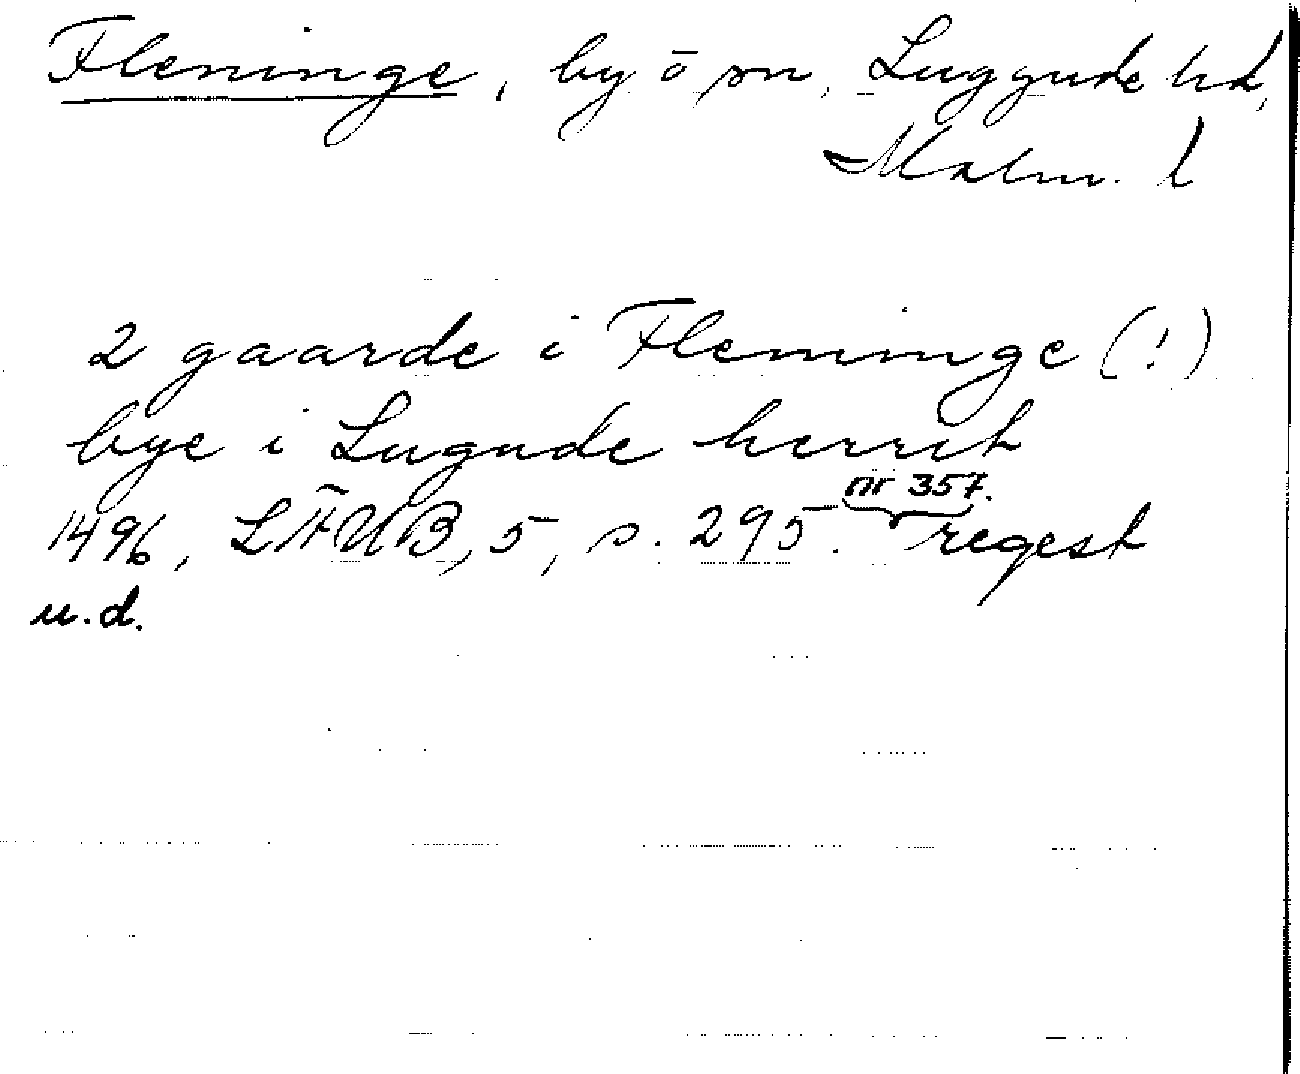 Fleninge, by o sn, Luggude hd,
Malm. l
2 gaarde i Fleminge (!)
bye i Lugude herrit
1496, LÄUB, 5, s. 295. nr 357. regest
u.d.